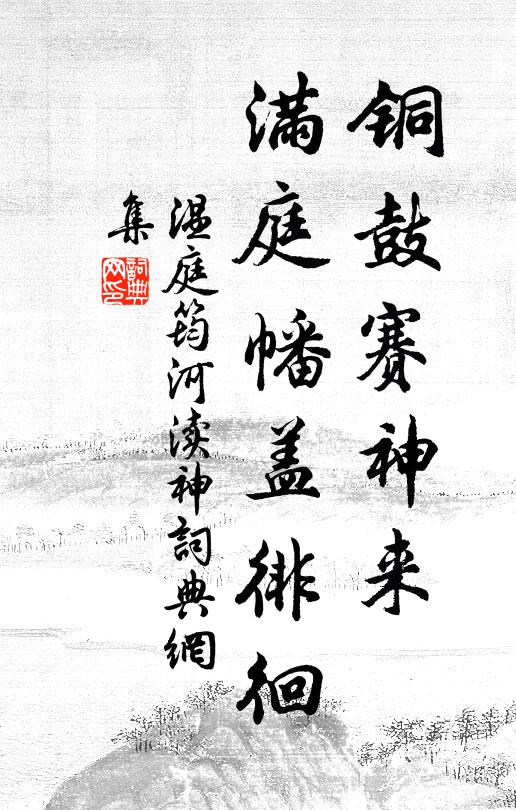 铜鼓赛神来
满庭幡盖徘徊
温庭筠河渎神詞典網
集
詞典网印